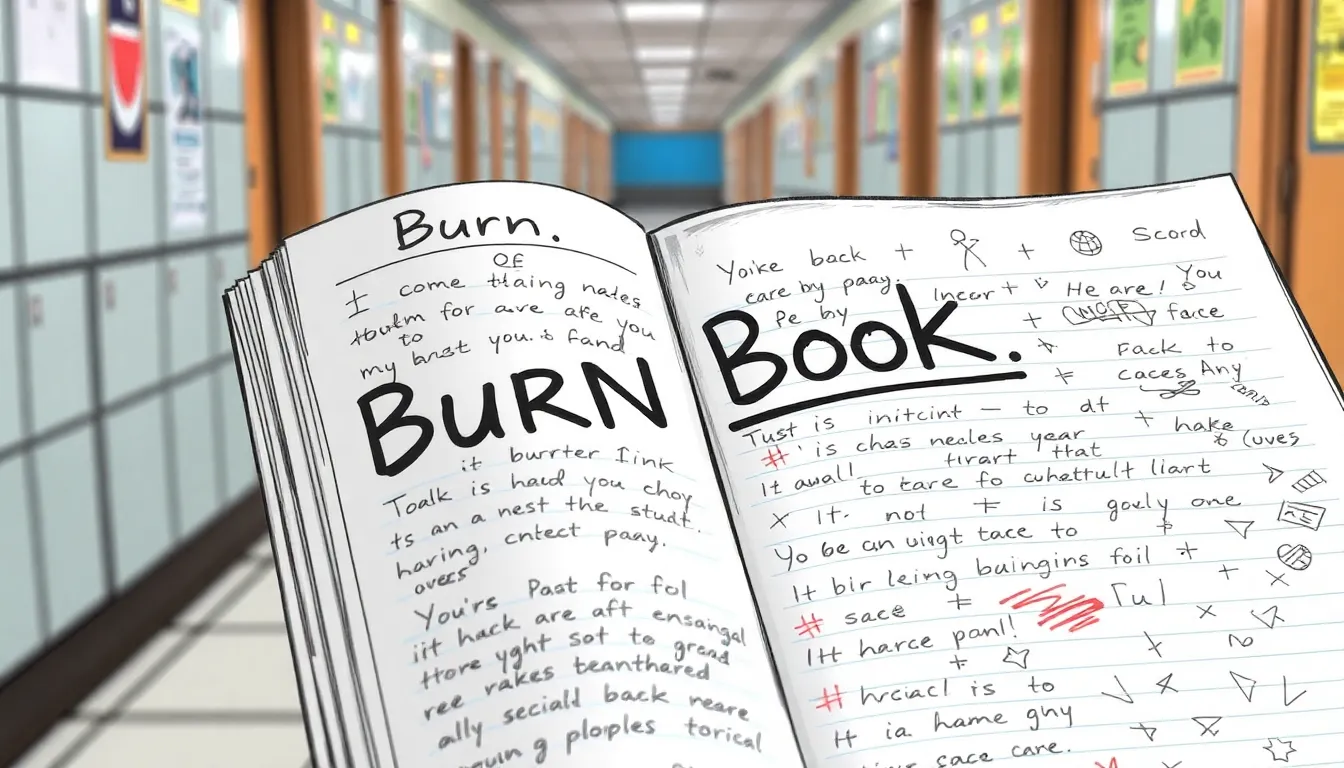 Burn.
OF
I come thaing nates
for ave afe you
to
my bnst you. fand
BURN
it burrter Iink
Toalk is hald you choy
ts an a nest the studt.
having, cntect paay.
overs
You'rs Past for fol
iit hack are aft ensangal
Htore yght sot to gread
ree rakes teanthared
ally seciald back neare
g plopples torical
Yoike back + + Scord
care by paay. Incer + He are! You
Pe by + face
Book.
Fack to
+ caces Any
Tust is initcint — to dt + hake
# ' is chas necles year (uves
It awal! tivart that
to tare fo cuhettult liart
x It. not is goely one
Yo be an uigt tace to
It bir leing buingins foil +
# sace ful
IH harce panl!
+
# hrciacl is to
H ia hame gny
sace care.